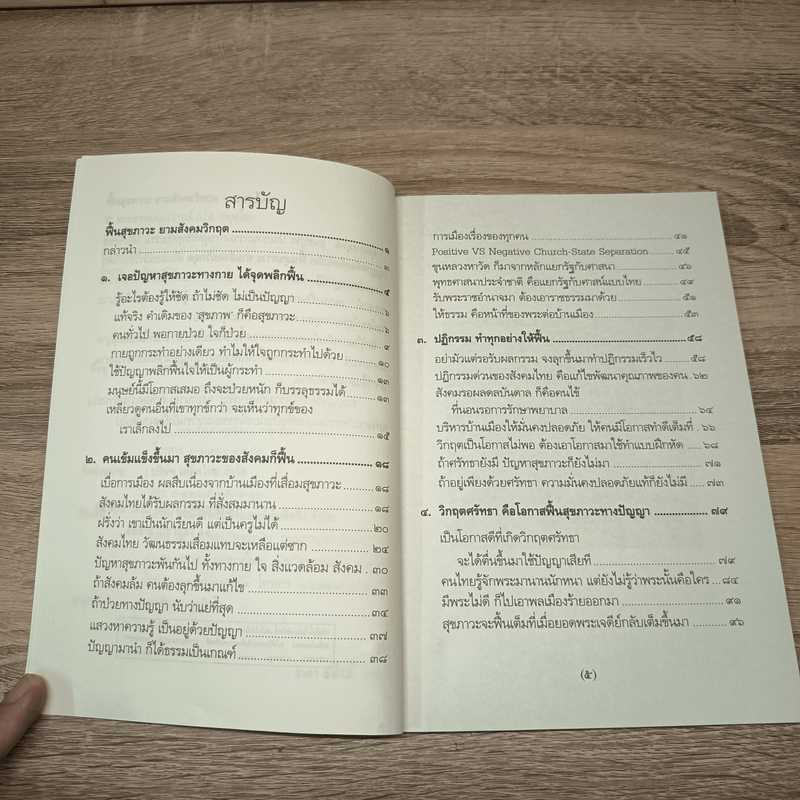 สารบัญ
ฟื้นสุขภาวะ ยามสังคมวิกฤต ๑
กล่าวนำ ๓
๑. เจอปัญหาสุขภาวะทางกาย ได้จุดพลิกฟื้น ๕
รู้อะไรต้องรู้ให้ชัด ถ้าไม่ชัด ไม่เป็นปัญญา ๖
แท้จริง คำเดิมของ 'สุขภาพ' ก็คือสุขภาวะ ๖
คนทั่วไป พอกายป่วย ใจก็ป่วย ๙
กายถูกกระทำอย่างเดียว ทำไมให้ใจถูกกระทำไปด้วย ๑๐
ใช้ปัญญาพลิกฟื้นใจให้เป็นผู้กระทำ ๑๓
มนุษย์นี้มีโอกาสเสมอ ถึงจะป่วยหนัก ก็บรรลุธรรมได้ ๑๓
เหลียวดูคนอื่นที่เขาทุกข์กว่า จะเห็นว่าทุกข์ของ
เราเล็กลงไป ๑๕
๒. คนเข้มแข็งขึ้นมา สุขภาวะของสังคมก็ฟื้น ๑๘
เบื่อการเมือง ผลสืบเนื่องจากบ้านเมืองที่เสื่อมสุขภาวะ ๑๘
สังคมไทยได้รับผลกรรม ที่สั่งสมมานาน ๑๘
ฝรั่งว่า เขาเป็นนักเรียนดี แต่เป็นครูไม่ได้ ๒๐
สังคมไทย วัฒนธรรมเสื่อมแทบจะเหลือแต่ซาก ๒๔
ปัญหาสุขภาวะพันกันไป ทั้งทางกาย ใจ สิ่งแวดล้อม สังคม . ๓๐
ถ้าสังคมล้ม คนต้องลุกขึ้นมาแก้ไข ๓๓
ถ้าป่วยทางปัญญา นับว่าแย่ที่สุด ๓๔
แสวงหาความรู้ เป็นอยู่ด้วยปัญญา ๓๗
ปัญญามานำ ก็ได้ธรรมเป็นเกณฑ์ ๓๘
การเมืองเรื่องของทุกคน ๔๑
Positive VS Negative Church-State Separation ๔๕
ขุนหลวงหาวัด ก็มาจากหลักแยกรัฐกับศาสนา ๔๖
พุทธศาสนาประจำชาติ คือแยกรัฐกับศาสน์แบบไทย ๔๙
รับพระราชอำนาจมา ต้องเอาราชธรรมมาด้วย ๕๑
ให้ธรรม คือหน้าที่ของพระต่อบ้านเมือง ๕๓
๓. ปฏิกรรม ทำทุกอย่างให้ฟื้น ๕๘
อย่ามัวแต่รอรับผลกรรม จงลุกขึ้นมาทำปฏิกรรมเร็วไว ๕๘
ปฏิกรรมด่วนของสังคมไทย คือแก้ไขพัฒนาคุณภาพของคน . ๖๒
สังคมรอผลดลบันดาล ก็คือคนไข้
ที่นอนรอการรักษาพยาบาล ๖๔
บริหารบ้านเมืองให้มั่นคงปลอดภัย ให้คนมีโอกาสทำดีเต็มที่ . ๖๖
วิกฤตเป็นโอกาสไม่พอ ต้องเอาโอกาสมาใช้ทำแบบฝึกหัด ๖๘
ถ้าศรัทธายังมี ปัญหาสุขภาวะก็ยังไม่มา ๗๑
ถ้าอยู่เพียงด้วยศรัทธา ความมั่นคงปลอดภัยแท้ก็ยังไม่มี ๗๓
๔. วิกฤตศรัทธา คือโอกาสฟื้นสุขภาวะทางปัญญา ๗๙
เป็นโอกาสดีที่เกิดวิกฤตศรัทธา
จะได้ตื่นขึ้นมาใช้ปัญญาเสียที ๗๙
คนไทยรู้จักพระมานานนักหนา แต่ยังไม่รู้ว่าพระนั้นคือใคร ๘๔
มีพระไม่ดี ก็ไปเอาพลเมืองร้ายออกมา ๙๑
สุขภาวะจะฟื้นเต็มที่เมื่อยอดพระเจดีย์กลับเต็มขึ้นมา ๙๖
(๕)